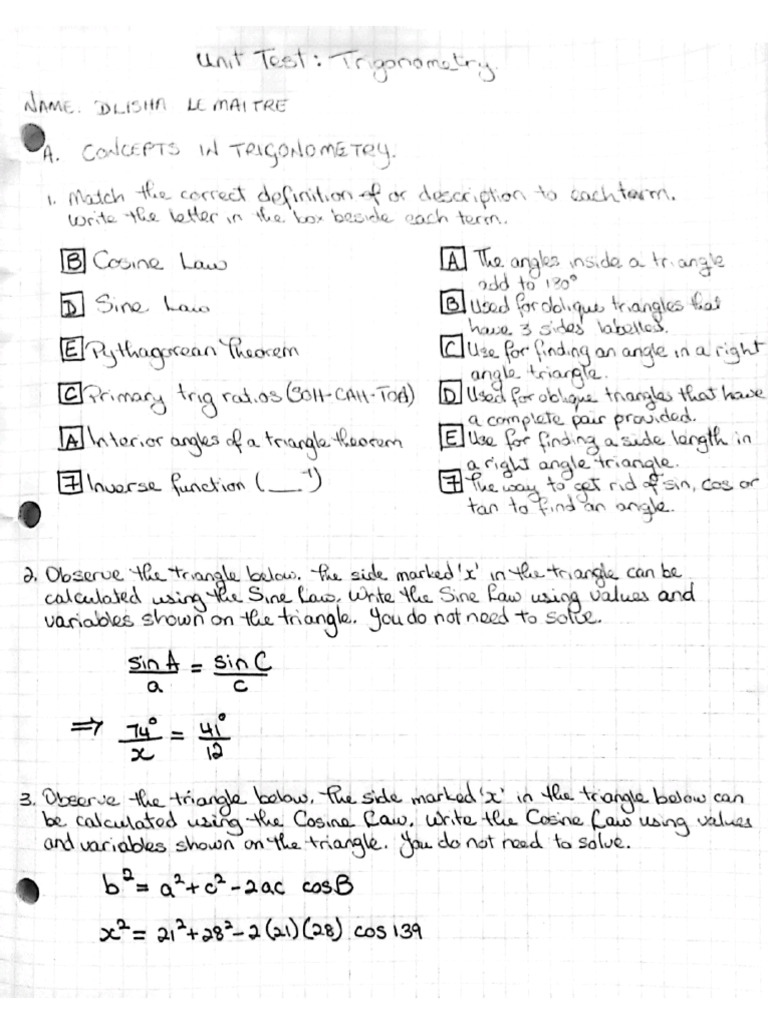 Unit Test: Trigonometry.
NAME. DLISHA LE MAITRE
A. CONCEPTS IN TRIGONOMETRY.
1. Match the correct definition of or description to each term.
Write the letter in the box beside each term.
B Cosine Law
D Sine Law
E Pythagorean Theorem
C Primary trig ratios (SOH-CAH-TOA)
A Interior angles of a triangle theorem
F Inverse function (__⁻¹)
A The angles inside a triangle
add to 180°
B Used for oblique triangles that
have 3 sides labelled.
C Use for finding an angle in a right
angle triangle.
D Used for oblique triangles that have
a complete pair provided.
E Use for finding a side length in
a right angle triangle.
F The way to get rid of sin, cos or
tan to find an angle.
2. Observe the triangle below. The side marked 'x' in the triangle can be
calculated using the Sine Law. Write the Sine Law using values and
variables shown on the triangle. You do not need to solve.
sin A = sin C
a c
⇒ 74° = 41°
x 12
3. Observe the triangle below. The side marked 'x' in the triangle below can
be calculated using the Cosine Law. Write the Cosine Law using values
and variables shown on the triangle. You do not need to solve.
b² = a² + c² - 2ac cosB
x² = 21² + 28² - 2(21)(28) cos 139